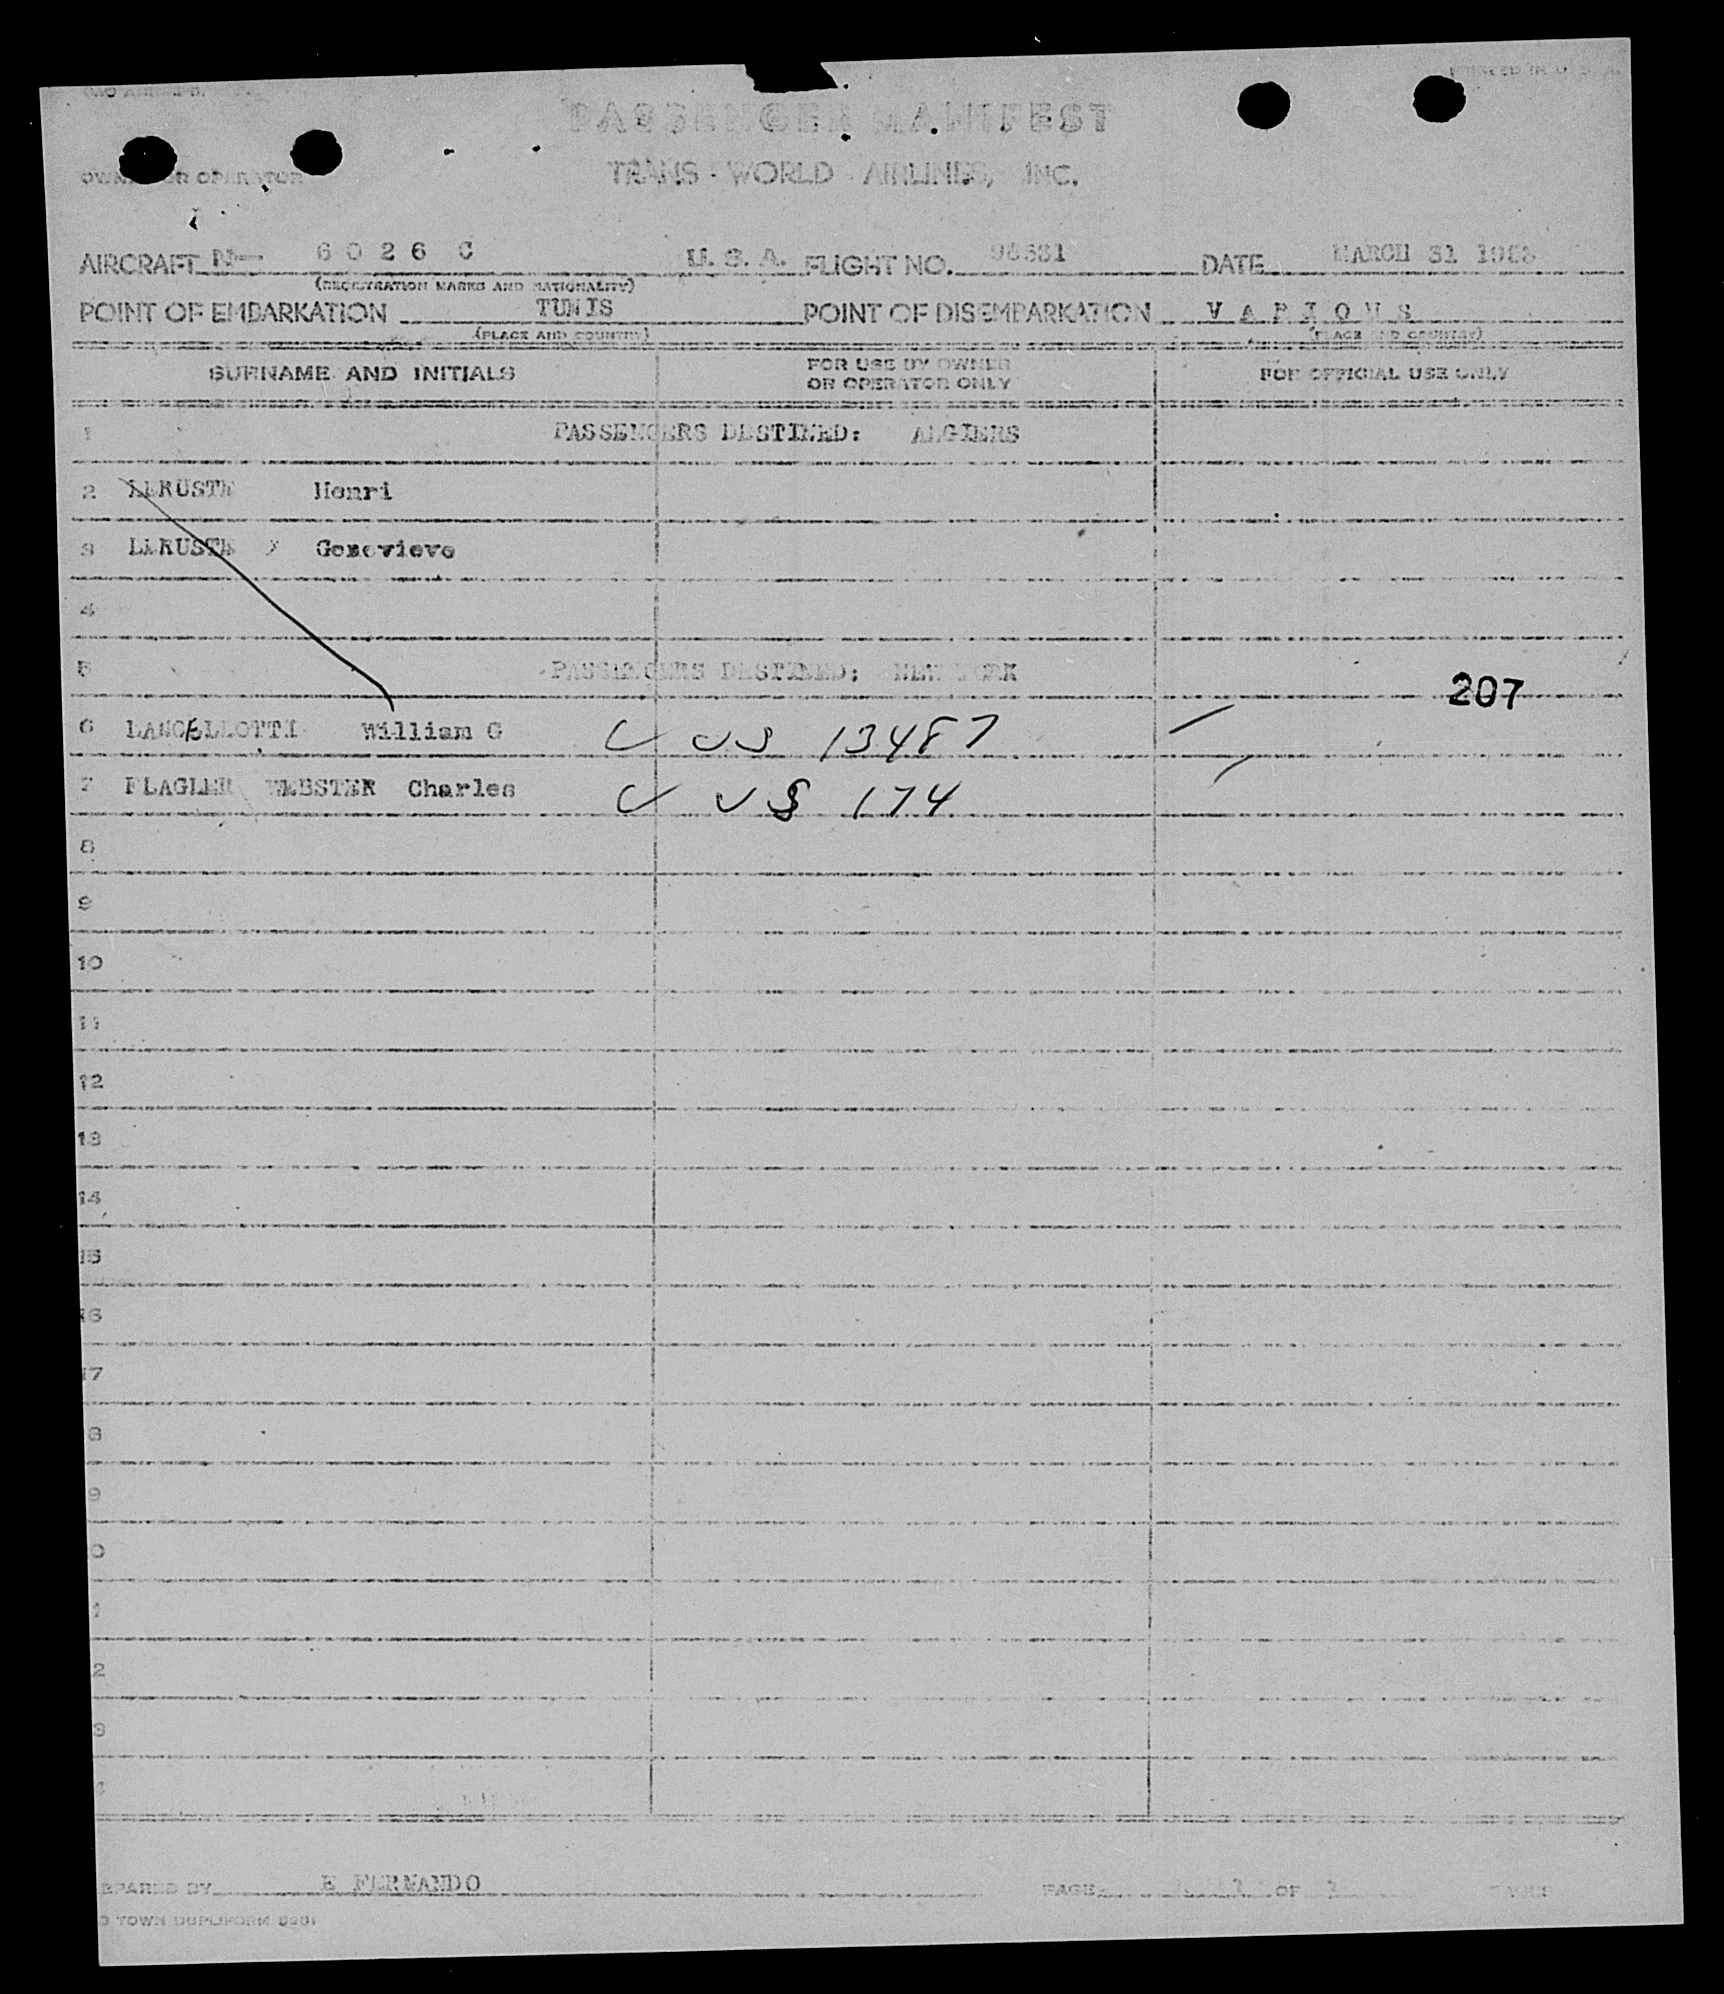 PRINTED IN U.S.A.
PASSENGER MANIFEST
OWNER OR OPERATOR
TRANS - WORLD AIRLINES, INC.
AIRCRAFT N- 6 0 2 6 C U. S. A. FLIGHT NO. DATE MARCH 31
(REGISTRATION MARKS AND NATIONALITY)
POINT OF EMBARKATION TUNIS POINT OF DISEMBARKATION V A R I O U S
(PLACE AND COUNTRY) (PLACE AND COUNTRY)
SURNAME AND INITIALS FOR USE BY OWNER OR OPERATOR ONLY FOR OFFICIAL USE ONLY
1 PASSENGERS DESTINED: ALGIERS
2 Henri
3 Genevieve
4
5 PASSENGERS DESTINED: NEW YORK
207
6 LANCELLOTTI William G C US 13487
7 FLAGLER WEBSTER Charles C US 174
8
9
10
11
12
13
14
15
16
17
8
9
0
1
2
3
EPARED BY E FERNANDO PAGE 1 OF
TOWN DUPLIFORM